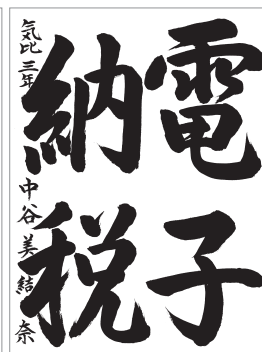 電子
納税
気比三年 中谷美結奈